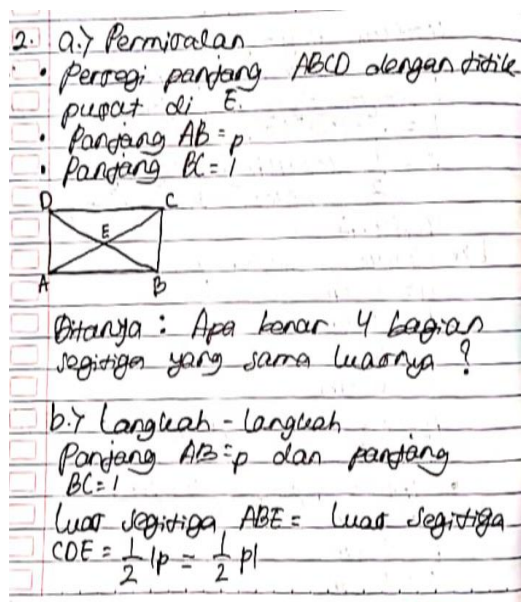 2. a.) Permisalan
• Persegi panjang ABCD dengan titik
pusat di E.
• Panjang AB = p
• Panjang BC = l
D C
E
A B
Ditanya : Apa benar 4 bagian
segitiga yang sama luasnya ?
b.) Langkah - langkah
Panjang AB = p dan panjang
BC = l
Luas segitiga ABE = Luas segitiga
CDE = 1/2 lp = 1/2 pl